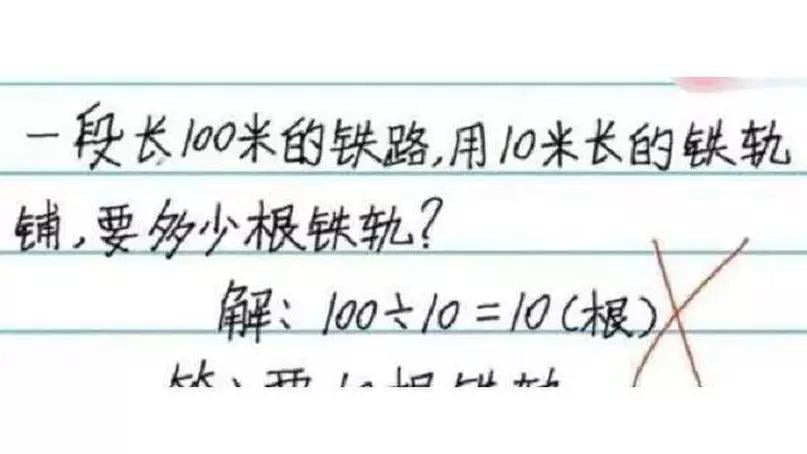 一段长100米的铁路,用10米长的铁轨
铺,要多少根铁轨?
解:100÷10=10(根)
答:要10根铁轨